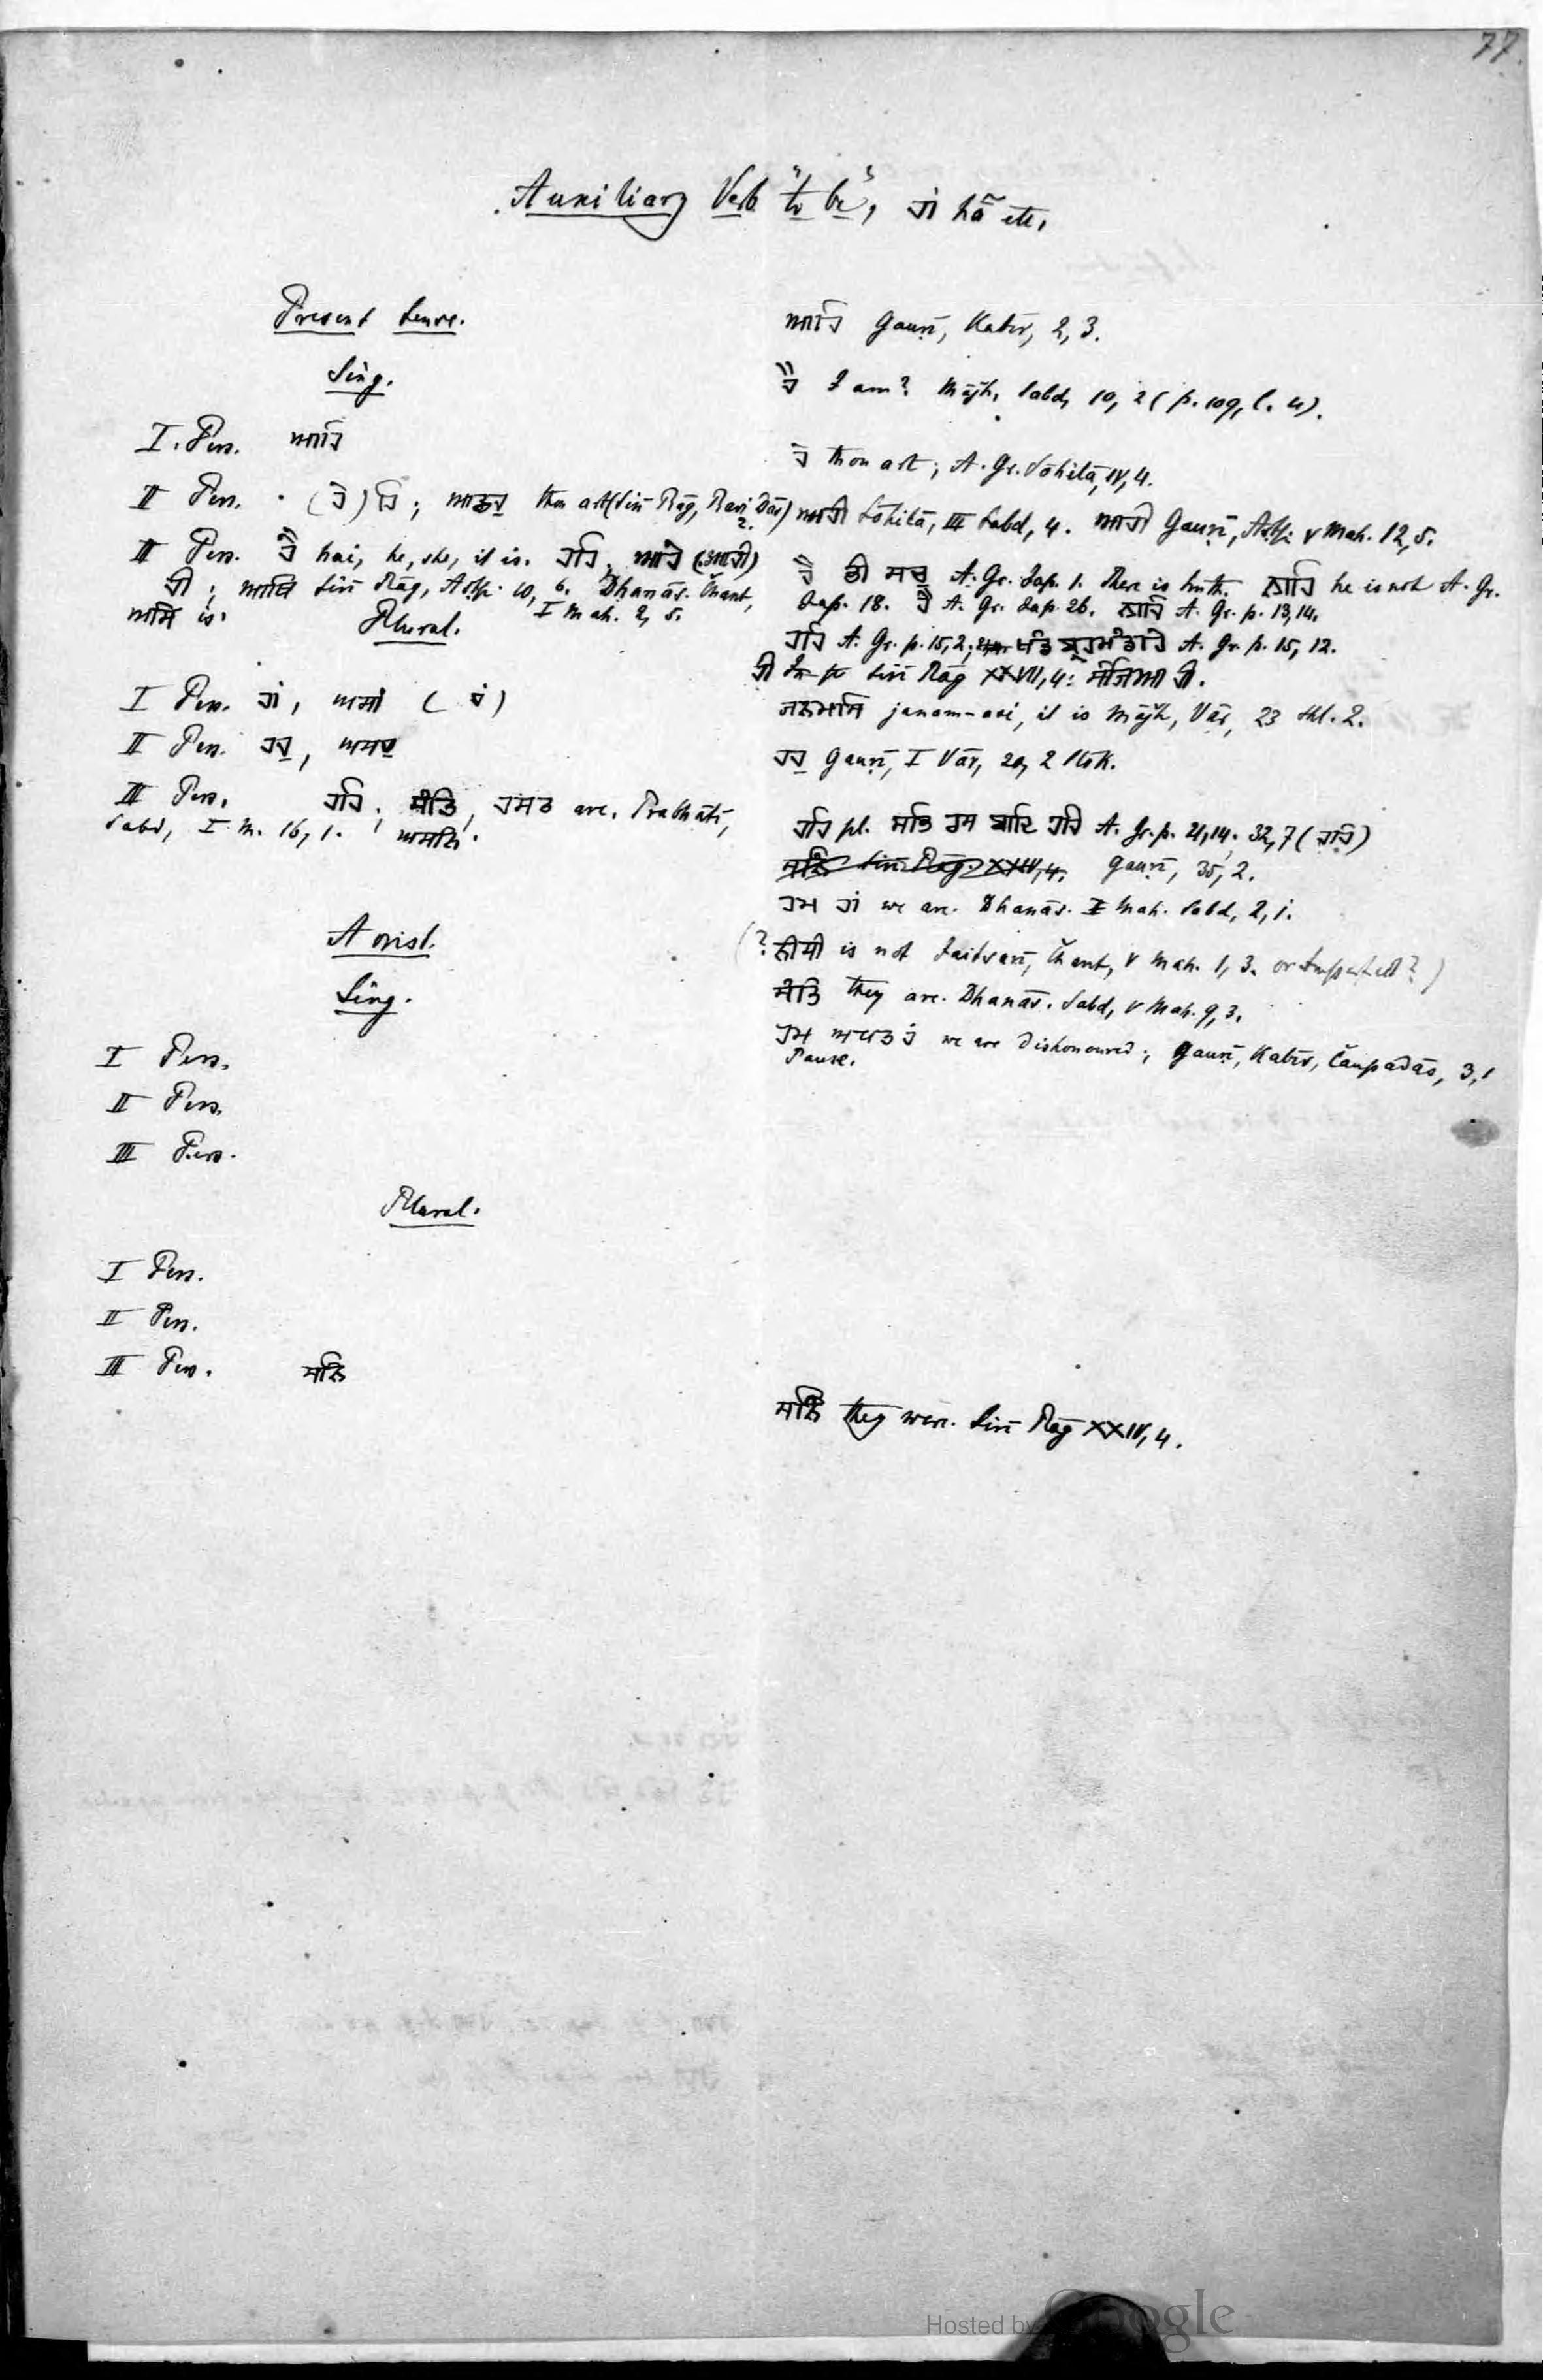 77.
Auxiliary Verb "to be", ਹਾਂ hã etc.
Present tense.
Sing.
I. Pers. ਆਹਿ
II Pers. (ਹੈ) ਹਿ; thou art (Sirī Rāg, Ravi Dās) 2.
III Pers. ਹੈ hai, he, she, it is. ਹਹਿ, ਆਹੇ (ਆਹੀ)
ਹੀ; Sirī Rāg, Aṣṭp. 10, 6. Dhanās. Čhant,
ਅਸਿ is. I Mah. 2, 5.
Plural.
I Pers. ਹਾਂ, ਅਸਾਂ (ਹਂ)
II Pers. ਹਹੁ, ਅਸਹੁ
III Pers. ਹਹਿ, ਸੰਤਿ, ਹਸਤ are. Prabhātī,
Sabd, I M. 16, 1. ਅਸਨਿ.
Aorist.
Sing.
I Pers.
II Pers.
III Pers.
Plural.
I Pers.
II Pers.
III Pers. ਸਨਿ
ਆਹਿ Gauṛī, Kabīr, 2, 3.
ਹੈ I am? Mājh, Sabd, 10, 2 (p. 109, l. 4).
ਹੈ thou art; A. Gr. Sōhilā, IV, 4.
ਆਹੀ Sōhilā, III Sabd, 4. ਆਹੀ Gauṛī, Aṣṭp. V Mah. 12, 5.
ਹੈ ਭੀ ਸਚੁ A. Gr. Jap. 1. There is truth. ਨਾਹਿ he is not A. Gr.
Jap. 18. ਹੈ A. Gr. Jap. 26. ਨਾਹਿ A. Gr. p. 13, 14.
ਹਹਿ A. Gr. p. 15, 2; A. Gr. p. 15, 12.
ਹੀ Sirī Rāg XXVII, 4:
ਜਨਮਸਿ janam-asi, it is Mājh, Vār, 23 Shl. 2.
ਹਹੁ Gauṛī, I Vār, 20, 2 Slōk.
ਹਹਿ pl. ਸਭਿ A. Gr. p. 21, 14; 32, 7 (ਹਹਿ)
ਸਨਿ Sirī Rāg. XXIV, 4. Gauṛī, 35, 2.
ਹਮ ਹਾਂ we are. Dhanās. I Mah. Sabd, 2, 1.
(? ਨੀਸੀ is not Jaitsarī, Čhant, V Mah. 1, 3. or Imperfect?)
ਸੰਤਿ they are. Dhanās. Sabd, V Mah. 9, 3.
ਹਮ we are dishonoured; Gauṛī, Kabīr, Čaupadās, 3, 1
Pause.
ਸਨਿ they were. Sirī Rāg XXIV, 4.
Hosted by Google